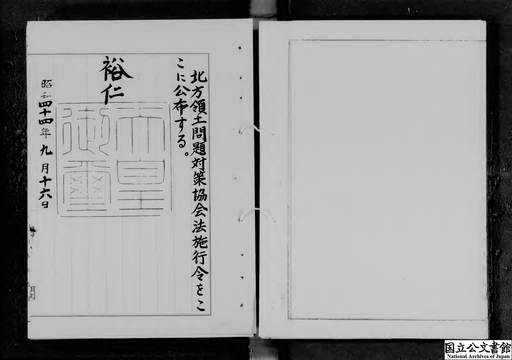 北方領土問題対策協会法施行令をこ
こに公布する。
裕仁
天皇
御璽
昭和四十四年九月十六日
国立公文書館
National Archives of Japan